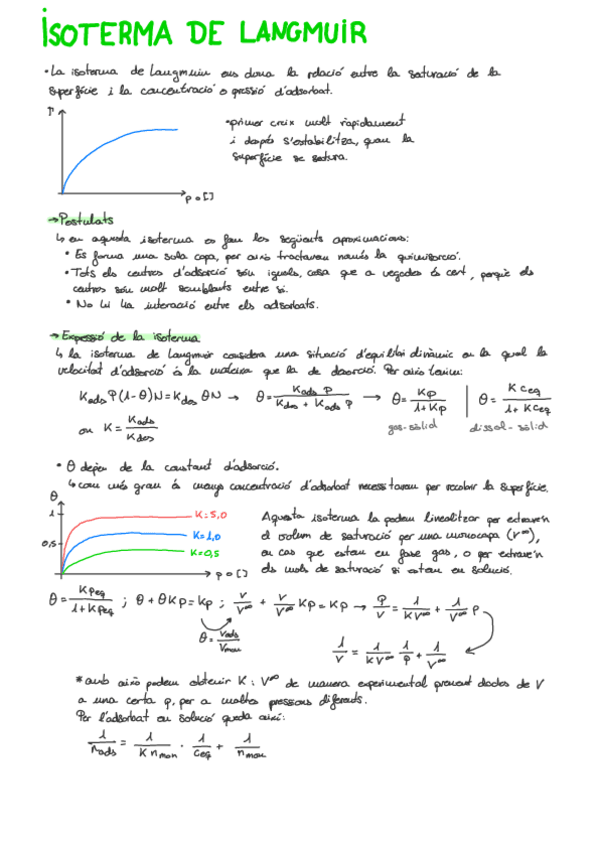 ISOTERMA DE LANGMUIR
• La isoterma de Langmuir ens dona la relació entre la saturació de la
superfície i la concentració o pressió d'adsorbat.
Γ
• primer creix molt ràpidament
i després s'estabilitza, quan la
superfície se satura.
P o []
→ Postulats
↳ en aquesta isoterma es fan les següents aproximacions:
• Es forma una sola capa, per això tractarem només la quimisorció.
• Tots els centres d'adsorció són iguals, cosa que a vegades és cert, perquè els
centres són molt semblants entre si.
• No hi ha interacció entre els adsorbats.
→ Expressió de la isoterma
↳ la isoterma de Langmuir considera una situació d'equilibri dinàmic en la qual la
velocitat d'adsorció és la mateixa que la de desorció. Per això tenim:
Kads P(1-θ)N = Kdes θN → θ = Kads P / Kdes + Kads P → θ = Kp / 1+Kp | θ = K Ceq / 1+ K Ceq
on K = Kads / Kdes
gas-sòlid dissol-sòlid
• θ depèn de la constant d'adsorció.
↳ com més gran és menys concentració d'adsorbat necessitarem per recobrir la superfície.
θ
1
K=5,0
K=1,0
0,5
K=0,5
P o []
Aquesta isoterma la podem linealitzar per extreure'n
el volum de saturació per una monocapa (V∞),
en cas que estem en fase gas, o per extreure'n
els mols de saturació si estem en solució.
θ = Kpeq / 1+Kpeq ; θ + θKp = Kp ; V/V∞ + V/V∞ Kp = Kp → P/V = 1/KV∞ + 1/V∞ P
θ = Vads / Vmax
1/V = 1/KV∞ 1/P + 1/V∞
* amb això podem obtenir K i V∞ de manera experimental prenent dades de V
a una certa p, per a moltes pressions diferents.
Per l'adsorbat en solució queda així:
1/nads = 1/K nmax · 1/Ceq + 1/nmax